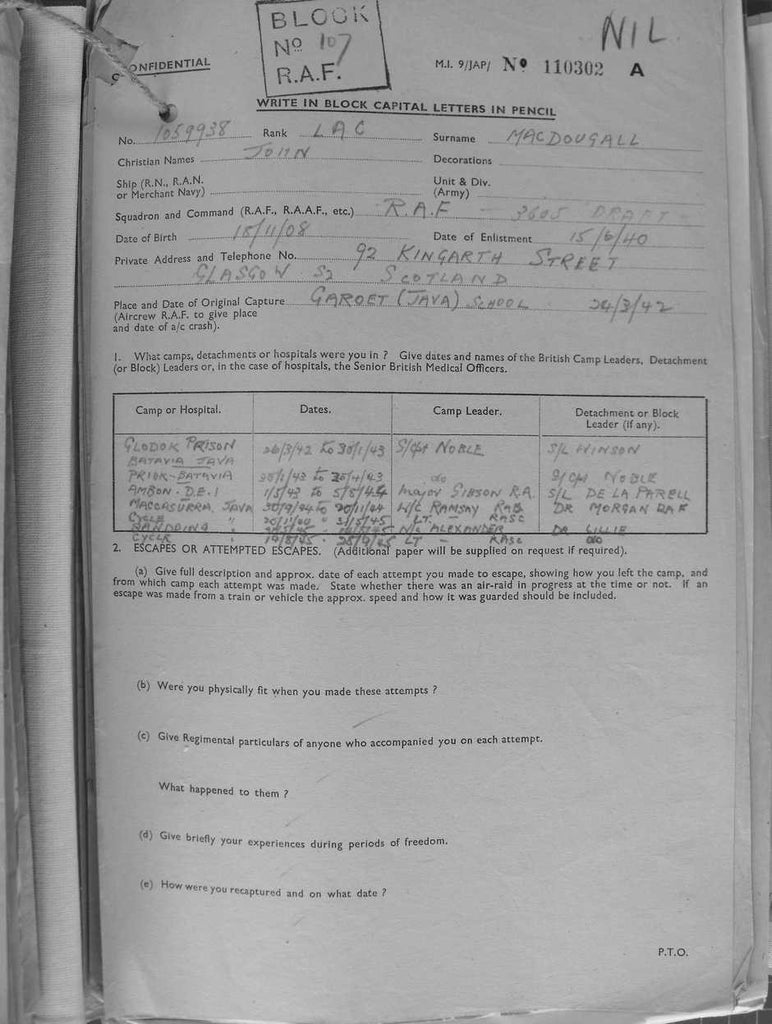 BLOCK
Nº 107
R.A.F.
NIL
CONFIDENTIAL
M.I. 9/JAP/ Nº 110302 A
WRITE IN BLOCK CAPITAL LETTERS IN PENCIL
No. 1059938 Rank LAC Surname MACDOUGALL
Christian Names JOHN Decorations
Ship (R.N., R.A.N. or Merchant Navy) Unit & Div. (Army)
Squadron and Command (R.A.F., R.A.A.F., etc.) R.A.F – 3605 DRAFT
Date of Birth 15/11/08 Date of Enlistment 15/6/40
Private Address and Telephone No. 92 KINGARTH STREET
GLASGOW S2 SCOTLAND
Place and Date of Original Capture GAROET (JAVA) SCHOOL 24/3/42
(Aircrew R.A.F. to give place
and date of a/c crash).
1. What camps, detachments or hospitals were you in ? Give dates and names of the British Camp Leaders, Detachment
(or Block) Leaders or, in the case of hospitals, the Senior British Medical Officers.
Camp or Hospital. Dates. Camp Leader. Detachment or Block Leader (if any).
GLODOK PRISON 26/3/42 to 30/1/43 NOBLE S/L HINSON
BATAVIA JAVA
PRIOK-BATAVIA to NOBLE
AMBON - D.E.I 1/5/43 to 5/8/44 Major GIBSON R.A. S/L DE LA PARELL
JAVA 30/9/44 to 20/11/44 W/C RAMSAY RAF DR MORGAN RAF
CYCLE " to 31/5/45 LT. – RASC
BANDOENG " ALEXANDER DR LILLIE
CYCLE 19/8/45 - 25/9/45 LT - RASC do
2. ESCAPES OR ATTEMPTED ESCAPES. (Additional paper will be supplied on request if required).
(a) Give full description and approx. date of each attempt you made to escape, showing how you left the camp, and
from which camp each attempt was made. State whether there was an air-raid in progress at the time or not. If an
escape was made from a train or vehicle the approx. speed and how it was guarded should be included.
(b) Were you physically fit when you made these attempts ?
(c) Give Regimental particulars of anyone who accompanied you on each attempt.
What happened to them ?
(d) Give briefly your experiences during periods of freedom.
(e) How were you recaptured and on what date ?
P.T.O.